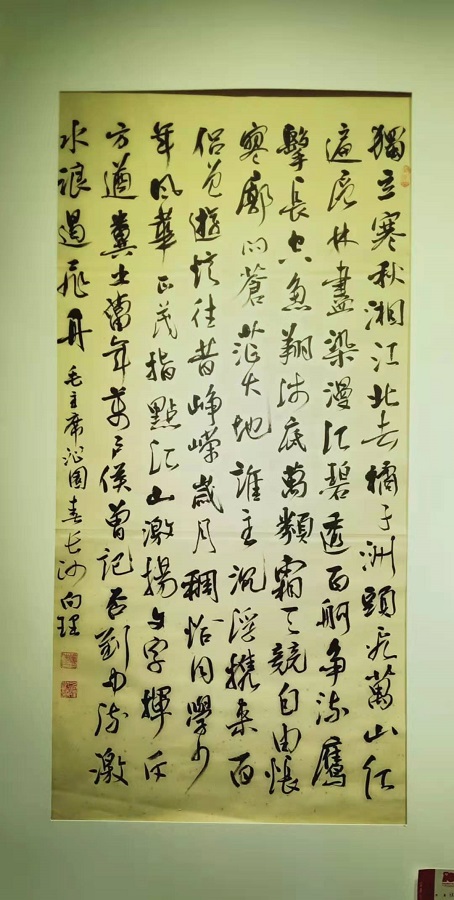 獨立寒秋湘江北去橘子洲頭看萬山紅
遍層林盡染漫江碧透百舸爭流鷹
擊長空魚翔淺底萬類霜天競自由悵
寥廓问蒼茫大地誰主沉浮攜來百
侶曾遊憶往昔崢嶸歲月稠恰同學少
年风華正茂指點江山激揚文字揮斥
方遒糞土當年萬户侯曾記否到中流激
水浪遏飛舟 毛主席沁园春长沙 向理